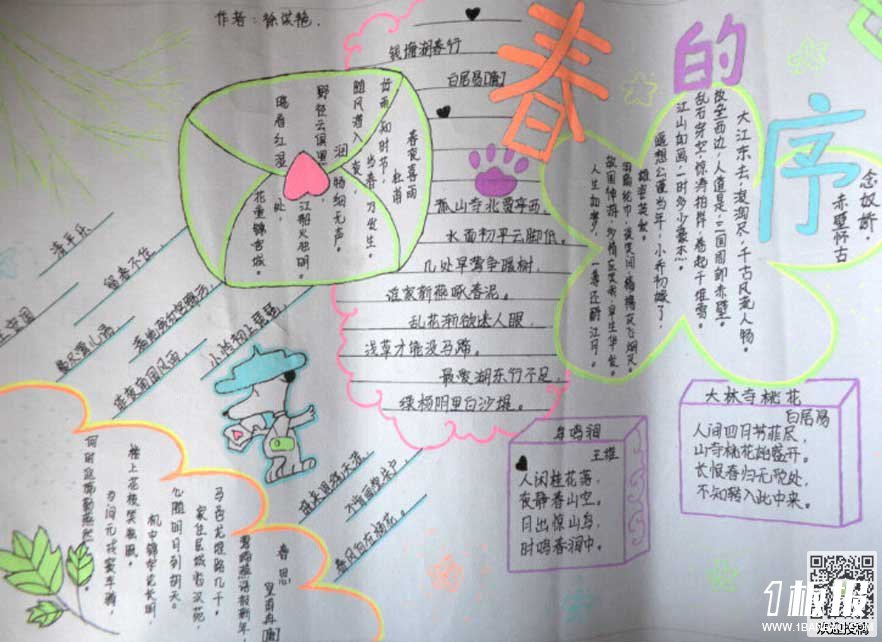 作者：徐
春的序
钱塘湖春行
白居易[唐]
孤山寺北贾亭西，
水面初平云脚低。
几处早莺争暖树，
谁家新燕啄春泥。
乱花渐欲迷人眼，
浅草才能没马蹄。
最爱湖东行不足，
绿杨阴里白沙堤。
春夜喜雨
杜甫
好雨知时节，
当春乃发生。
随风潜入夜，
润物细无声。
野径云俱黑，
江船火独明。
晓看红湿处，
花重锦官城。
念奴娇·
赤壁怀古
大江东去，浪淘尽，千古风流人物。
故垒西边，人道是，三国周郎赤壁。
乱石穿空，惊涛拍岸，卷起千堆雪。
江山如画，一时多少豪杰。
遥想公瑾当年，小乔初嫁了，
雄姿英发。
羽扇纶巾，谈笑间，樯橹灰飞烟灭。
故国神游，多情应笑我，早生华发。
人生如梦，一尊还酹江月。
清平乐
王安国
留春不住，
费尽莺儿语。
满地残红宫锦污，
昨夜南园风雨。
小怜初上琵琶，
晓来思绕天涯。
不肯画堂朱户，
春风自在杨花。
春思
皇甫冉[唐]
莺啼燕语报新年，
马邑龙堆路几千。
家住层城临汉苑，
心随明月到胡天。
机中锦字论长恨，
楼上花枝笑独眠。
为问元戎窦车骑，
何时返旆勒燕然。
鸟鸣涧
王维
人闲桂花落，
夜静春山空。
月出惊山鸟，
时鸣春涧中。
大林寺桃花
白居易
人间四月芳菲尽，
山寺桃花始盛开。
长恨春归无觅处，
不知转入此中来。
1板报
WWW.1BANBAO.COM
快速投稿